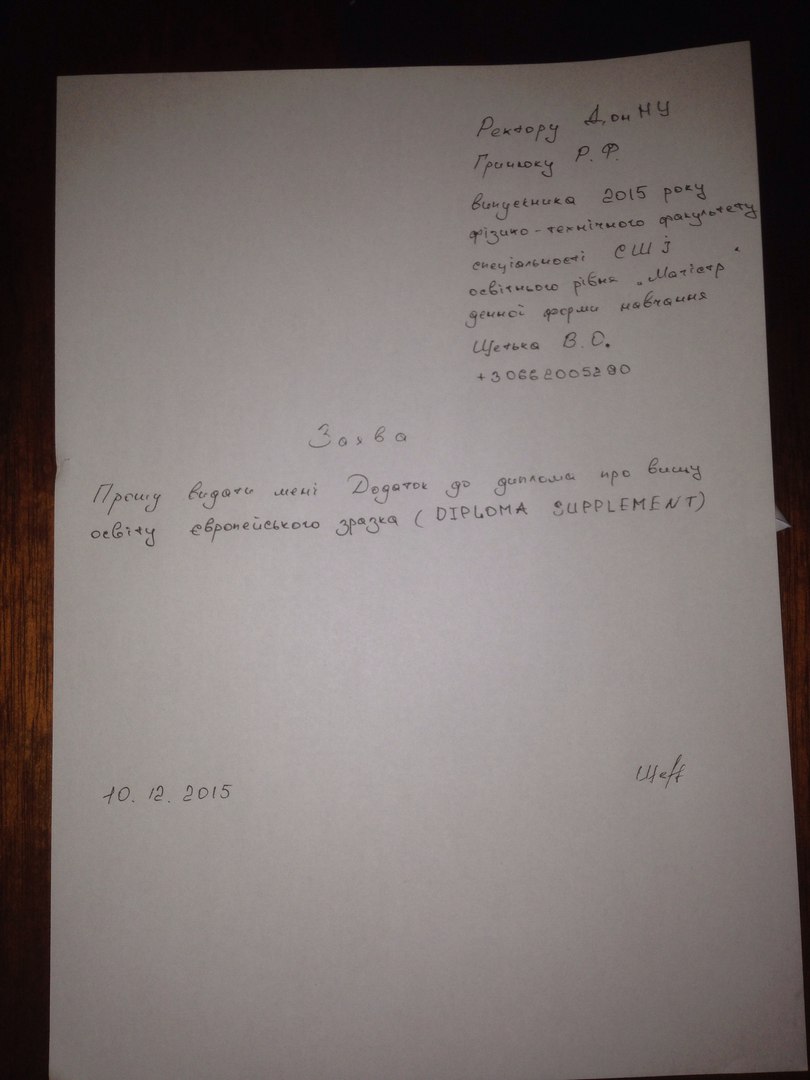 Ректору ДонНУ
Гринюку Р.Ф.
випускника 2015 року
фізико-технічного факультету
спеціальності СШІ
освітнього рівня „Магістр"
денної форми навчання
Щетька В.О.
+30662005290
Заява
Прошу видати мені Додаток до диплома про вищу
освіту європейського зразка (DIPLOMA SUPPLEMENT)
10.12.2015